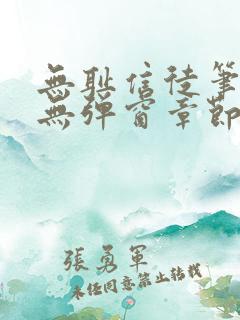 無耻信徒筆
無彈窗章節
張勇軍
未經同意禁止轉載